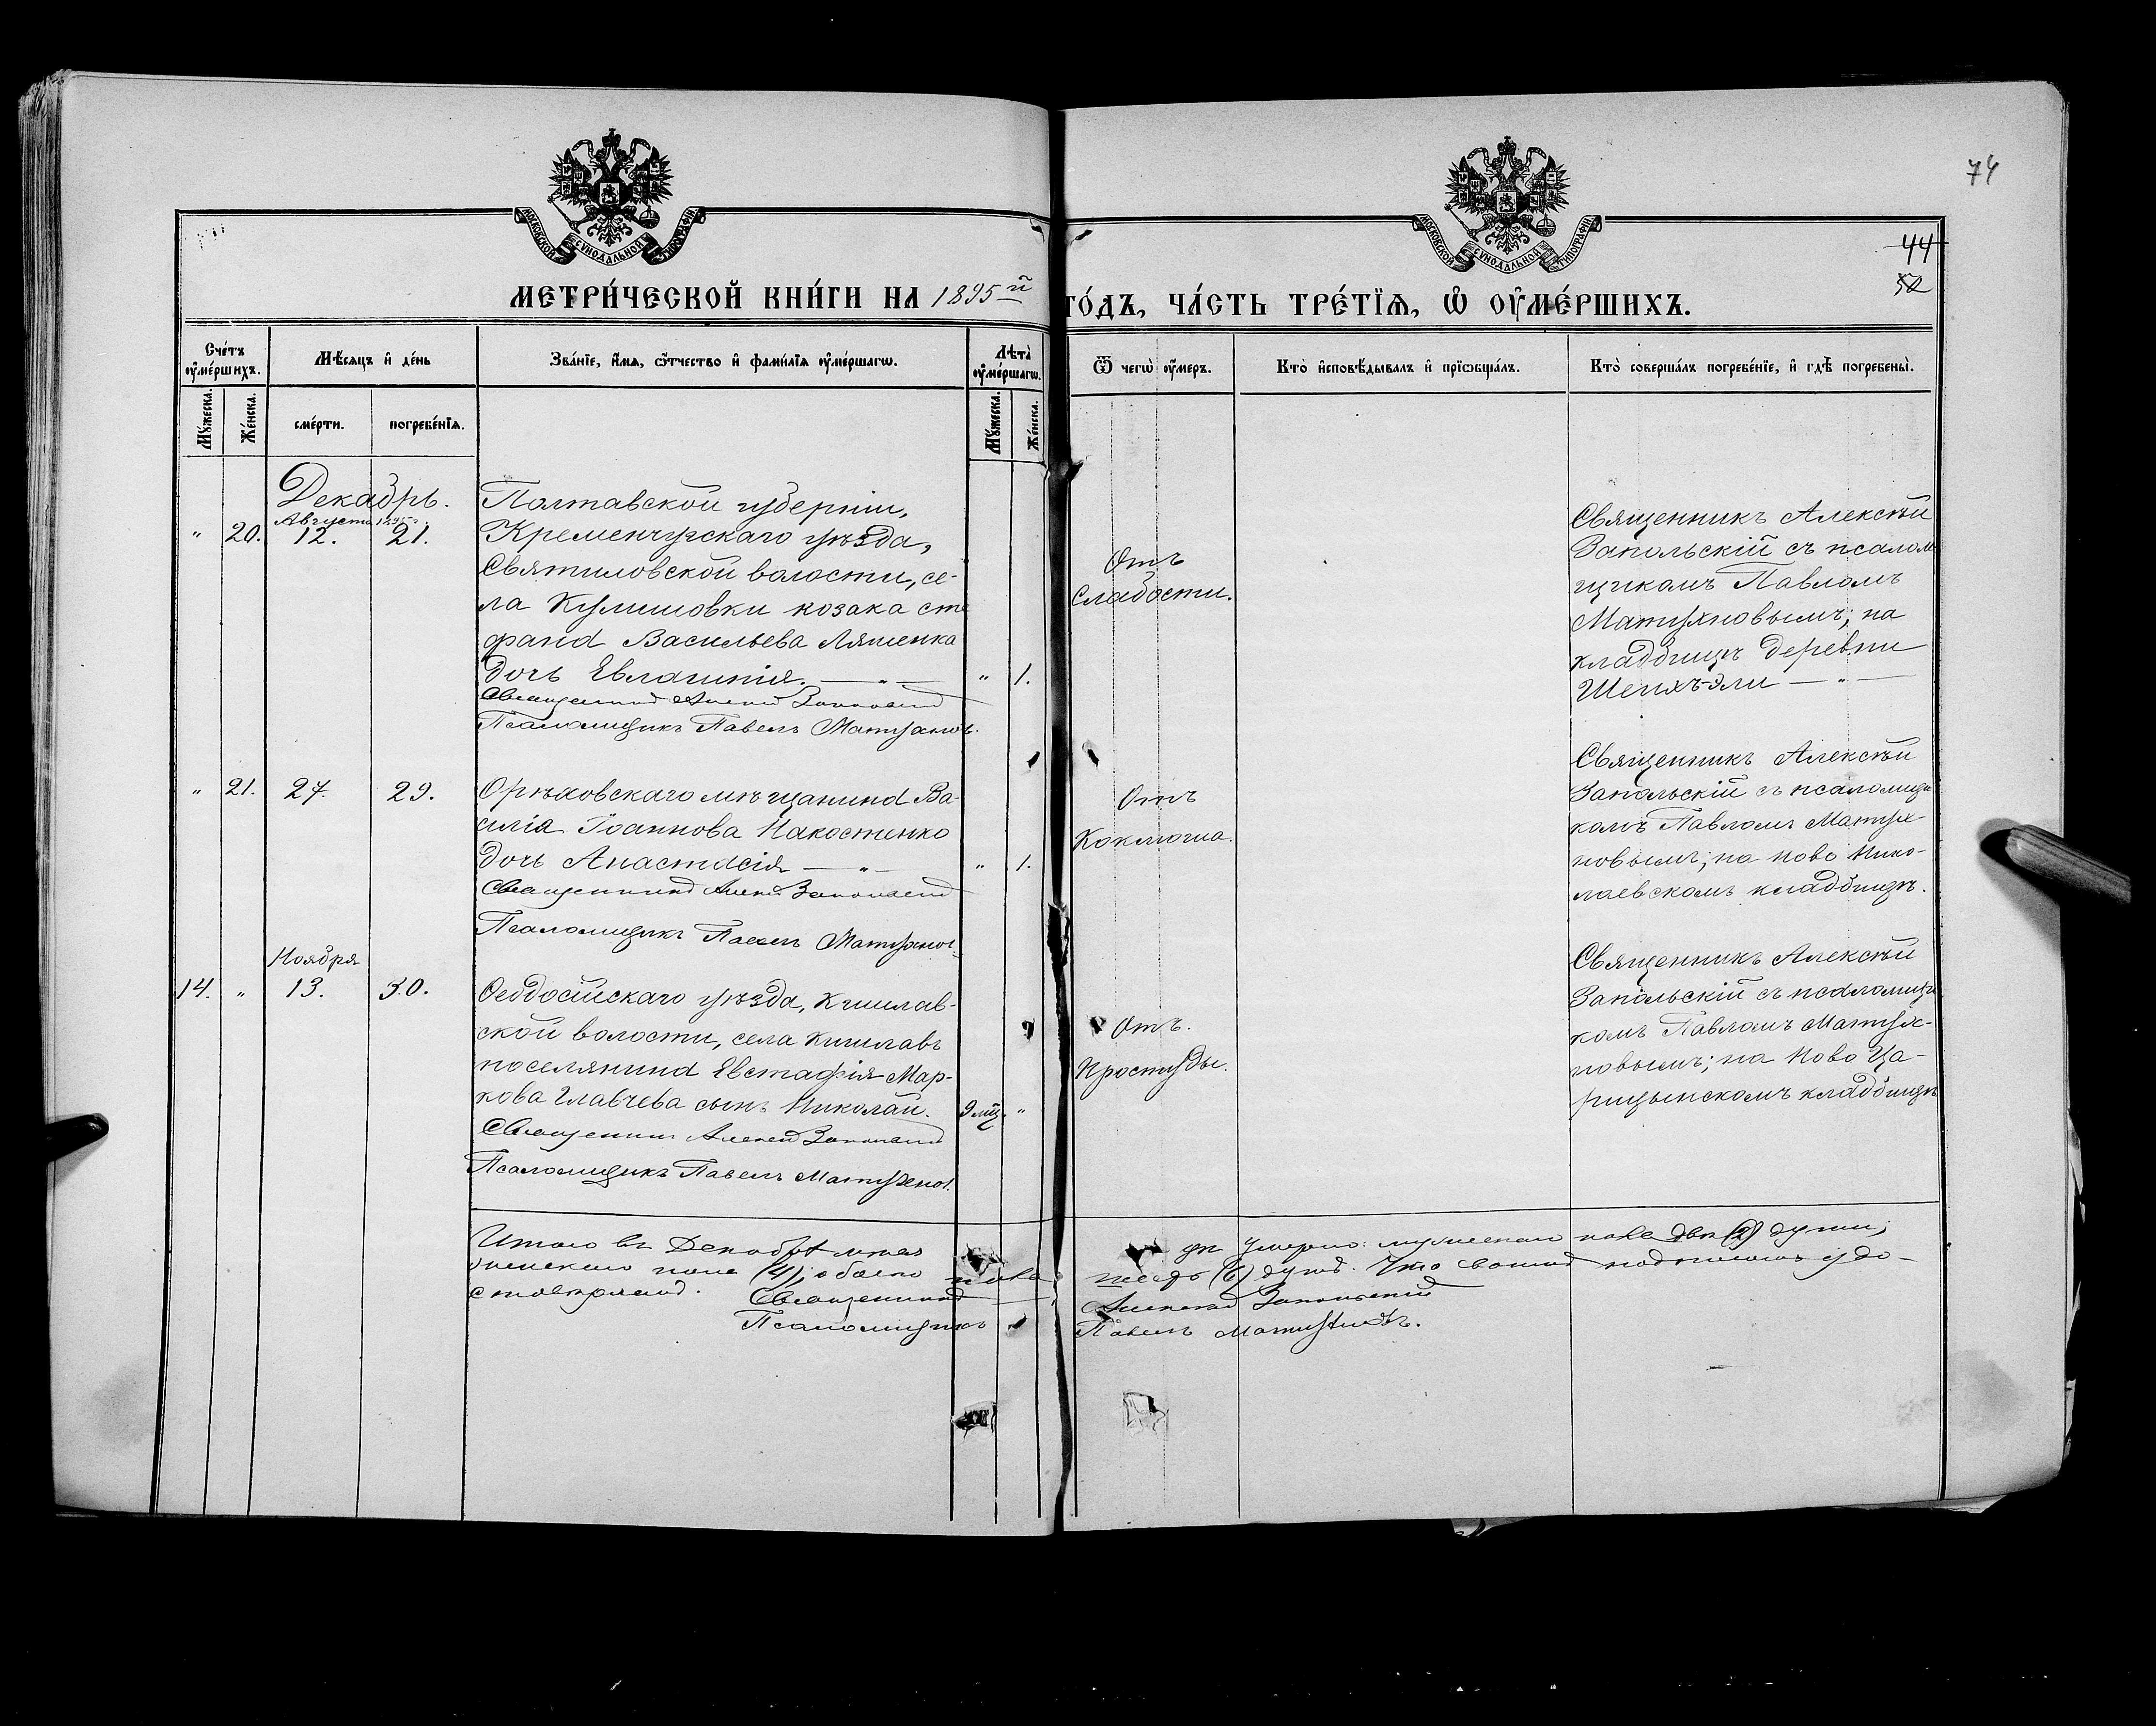 74
МОСКОВСКОЙ СѴНОДАЛЬНОЙ ТИПОГРАФІИ
МОСКОВСКОЙ СѴНОДАЛЬНОЙ ТИПОГРАФІИ
44
52
МЕТРИ́ЧЕСКОЙ КНИ́ГИ НА 1895й
ГО́ДЪ, ЧА́СТЬ ТРЕ́ТІѦ, Ѡ҆ ОУ҆МЕ́РШИХЪ.
Сче́тъ оу҆ме́ршихъ.
Мѣсяцъ и҆ де́нь
Зва́нїе, и҆́мѧ, ѻ҆́тчество и҆ фами́лїѧ оу҆ме́ршагѡ.
Лѣта̀ оу҆ме́ршагѡ.
Ѿ чегѡ̀ оу҆́меръ.
Кто̀ и҆сповѣ́дывалъ и҆ прїѡбща́лъ.
Кто̀ соверша́лъ погребе́нїе, и҆ гдѣ̀ погребены̀.
Му́жеска.
Же́нска.
сме́рти.
погребе́нїѧ.
Му́жеска.
Же́нска.
Декабрь.
Августа 1895 г.
" 20. 12. 21.
Полтавской губерніи,
Кременчугскаго уѣзда,
Святиловской волости, се-
ла Кулишовки козака сте
фана Васильева Ляшенка
дочь Евлампія. — " —
" 1.
Священникъ Алексѣй Запольскій
Псаломщикъ Павелъ Матухновъ.
Отъ
слабости.
Священникъ Алексѣй
Запольскій съ псалом
щикомъ Павломъ
Матухновымъ; на
кладбищѣ деревни
Шеихъ-Эли — " —
" 21. 27. 29.
Орѣховскаго мѣщанина Ва-
силія Іоаннова Накостенко
дочь Анастасія — " —
" 1.
Священникъ Алексѣй Запольскій
Псаломщикъ Павелъ Матухновъ.
Отъ
Коклюша.
Священникъ Алексѣй
Запольскій съ псаломщи
комъ Павломъ Матух-
новымъ; на Ново Нико-
лаевскомъ кладбищѣ.
Ноября
14. " 13. 30.
Ѳеодосійскаго уѣзда, Кишлав-
ской волости, села Кишлавъ
поселянина Евстафія Мар-
кова Главчева сынъ Николай.
9 мц. "
Священникъ Алексѣй Запольскій
Псаломщикъ Павелъ Матухновъ.
Отъ.
Простуды.
Священникъ Алексѣй
Запольскій съ псаломщи
комъ Павломъ Матух-
новымъ; на Ново Ца-
рицынскомъ кладбищѣ
Итого въ Декабрѣ мѣсяцѣ умерло: мужескаго пола двѣ (2) души;
женскаго пола (4); обоего пола шесть (6) душъ. Что своимъ подписомъ удо-
стовѣряемъ. Священникъ Алексѣй Запольскій
Псаломщикъ Павелъ Матухновъ.